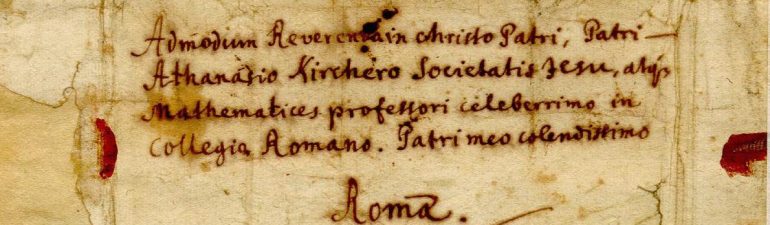 Admodum Reverendo in Christo Patri, Patri
Athanasio Kirchero Societatis Jesu, atq;
Mathematices professori celeberrimo in
Collegio Romano. Patri meo colendissimo
Romã.